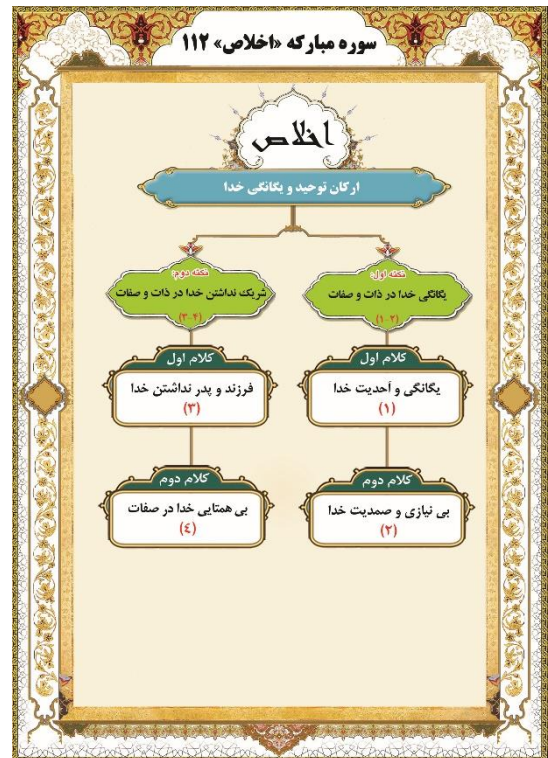 سوره مبارکه «اخلاص» ۱۱۲
اخلاص
ارکان توحید و یگانگی خدا
نکته اول:
یگانگی خدا در ذات و صفات
(۱-۲)
کلام اول
یگانگی و اَحدیت خدا
(۱)
کلام دوم
بی نیازی و صمدیت خدا
(۲)
نکته دوم:
شریک نداشتن خدا در ذات و صفات
(۳-۴)
کلام اول
فرزند و پدر نداشتن خدا
(۳)
کلام دوم
بی همتایی خدا در صفات
(٤)